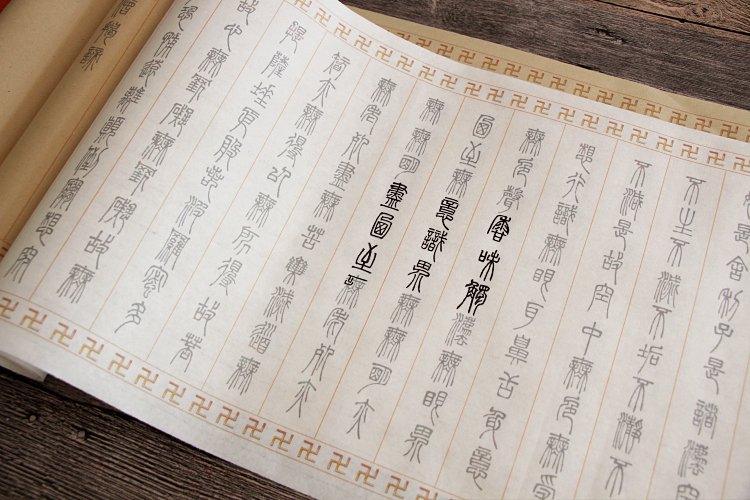 是舍利子是諸法空
不生不滅不垢不淨不
不減是故空中無色無受
想行識無眼耳鼻舌身意
無色聲香味觸法無眼界
乃至無意識界無無明亦
無無明盡乃至無老死亦
無老死盡無苦集滅道無
智亦無得以無所得故菩
提薩埵依般若波羅蜜多
故心無罣礙無罣礙故無
恐怖遠離顛倒夢想究